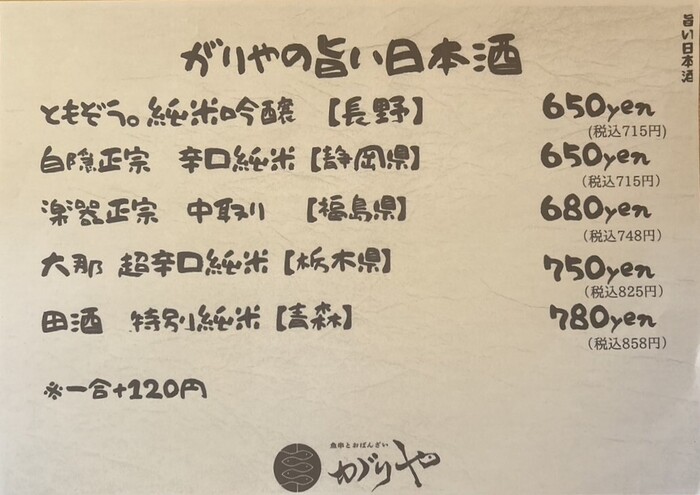 旨い日本酒
がりやの旨い日本酒
ともぞう。純米吟醸 【長野】 650yen
(税込715円)
白隠正宗 辛口純米【静岡県】 650yen
(税込715円)
楽器正宗 中取り 【福島県】 680yen
(税込748円)
大那 超辛口純米【栃木県】 750yen
(税込825円)
田酒 特別純米【青森】 780yen
(税込858円)
※一合+120円
魚串とおばんざい
がりや